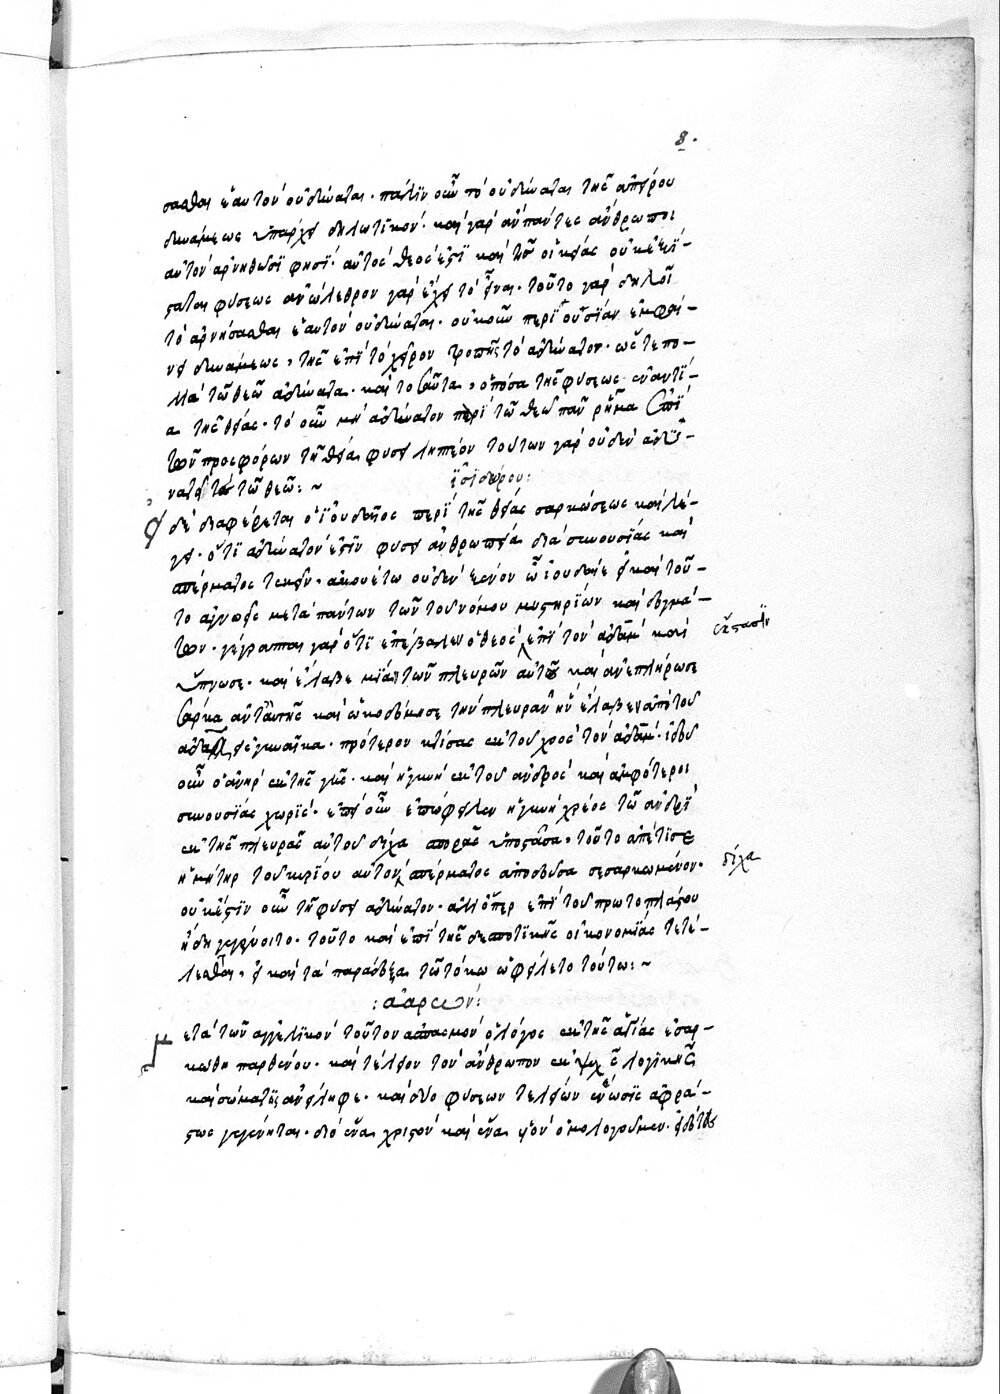 8.
σασθαι ἑαυτὸν οὐ δύναται. πάλιν οὖν τὸ οὐ δύναται τῆς ἀπείρου
δυνάμεως ὑπάρχει δηλωτικόν. καὶ γὰρ ἂν πάντες ἄνθρωποι
αὐτὸν ἀρνηθῶσί φησι. αὐτὸς θεός ἐστι καὶ τῆς οἰκείας οὐκ ἐξί-
σταται φύσεως ἀνώλεθρον γὰρ ἔχει τὸ εἶναι. τοῦτο γὰρ δηλοῖ
τὸ ἀρνήσασθαι ἑαυτὸν οὐ δύναται. οὐκοῦν περὶ οὐσίαν ἐμφαί-
νει δυνάμεως, τῆς ἐπὶ τὸ χεῖρον τροπῆς τὸ ἀδύνατον. ὥστε πο-
λλὰ τῶ θεῶ ἀδύνατα. καὶ τοσαῦτα, ὁπόσα τῆς φύσεως ἐναντί-
α τῆς θείας. τὸ οὖν μὴ ἀδύνατον περὶ τῶ θεῶ πᾶν ῥῆμα ἐπὶ
τῶν προσφόρων τῆ θεία φύσει ληπτέον τούτων γὰρ οὐδὲν ἀδυ-
νατεῖ τῶ θεῶ: ~
ἰσιδώρου:
εἰ δὲ διαφέρεται ὁ ἰουδαῖος περὶ τῆς θείας σαρκώσεως καὶ λέ-
γει. ὅτι ἀδύνατόν ἐστιν φύσει ἀνθρωπεία διὰ συνουσίας καὶ
σπέρματος τεκεῖν. ἀκουέτω οὐδὲν ξένον ὦ ἰουδαῖε εἰ καὶ τοῦ-
το ἀγνοεῖς μετὰ πάντων τῶν τοῦ νόμου μυστηρίων καὶ δογμά-
των. γέγραπται γὰρ ὅτι ἐπέβαλεν ὁ θεὸς ἐπὶ τὸν ἀδὰμ καὶ
ἔκστασιν
ὕπνωσε. καὶ ἔλαβε μίαν τῶν πλευρῶν αὐτοῦ καὶ ἀνεπλήρωσε
σάρκα ἀντ' αὐτῆς καὶ ὠκοδόμησε τὴν πλευρὰν ἣν ἔλαβεν ἀπὸ τοῦ
ἀδὰμ εἰς γυναῖκα. πρότερον κτίσας ἐκ τοῦ χοὸς τὸν ἀδάμ. ἰδοὺ
οὖν ὁ ἀνὴρ ἐκ τῆς γῆς. καὶ ἡ γυνὴ ἐκ τοῦ ἀνδρὸς καὶ ἀμφότεροι
συνουσίας χωρίς. ἐπεὶ οὖν ἐπώφειλεν ἡ γυνὴ χρέος τῶ ἀνδρὶ
ἐκ τῆς πλευρᾶς αὐτοῦ δίχα σπορᾶς ὑποστᾶσα. τοῦτο ἀπέτισε
ἡ μήτηρ τοῦ κυρίου αὐτὸν σπέρματος ἀποδοῦσα σεσαρκωμένον.
δίχα
οὐκ ἔστιν οὖν τῆ φύσει ἀδύνατον. ἀλλ' ὅπερ ἐπὶ τοῦ πρωτοπλάστου
ἤδη γεγένοιτο. τοῦτο καὶ ἐπὶ τῆς δεσποτικῆς οἰκονομίας τετέ-
λεσθαι. εἰ καὶ τὰ παράδοξα τῶ τόκω ὠφείλετο τούτω: ~
: ἀάρων:
μετὰ τῶν ἀγγελικὸν τοῦτον ἀσπασμὸν ὁ λόγος ἐκ τῆς ἁγίας ἐσαρ-
κώθη παρθένου. καὶ τέλειον τὸν ἄνθρωπον ἐκ ψυχῆς λογικῆς
καὶ σώματος ἀνείληφε. καὶ δύο φύσεων τελείων ἕνωσις ἀφρά-
στως γεγένηται. διὸ ἕνα χριστὸν καὶ ἕνα υἱὸν ὁμολογοῦμεν. εἰδότες